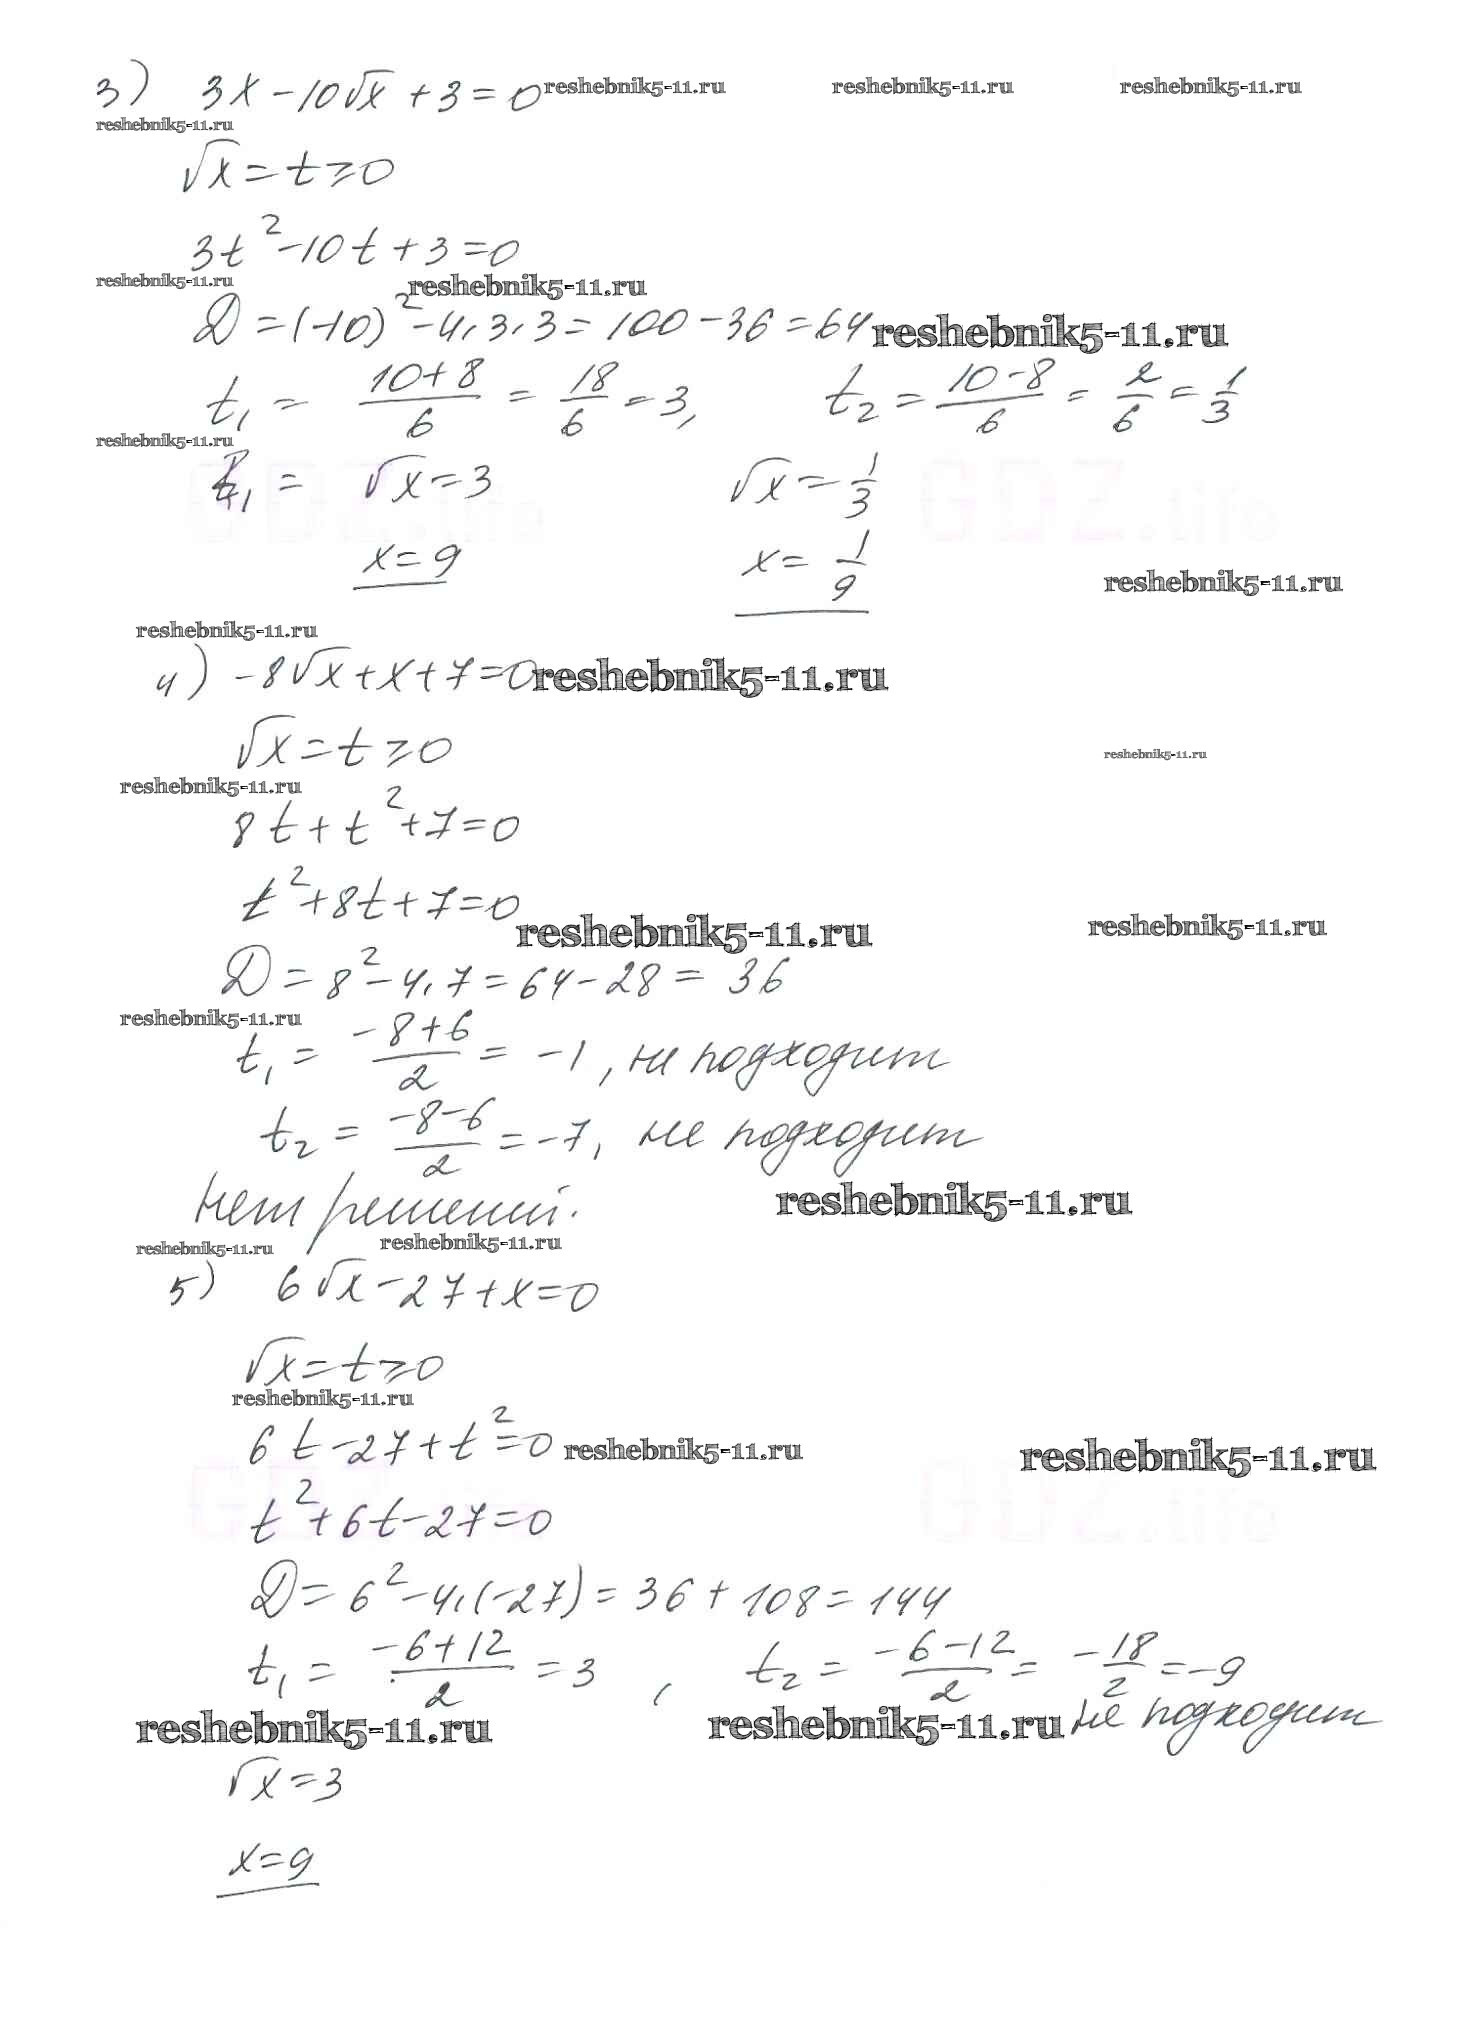 3) 3x - 10√x + 3 = 0 reshebnik5-11.ru reshebnik5-11.ru reshebnik5-11.ru
reshebnik5-11.ru
√x = t ⩾ 0
3t² - 10t + 3 = 0
reshebnik5-11.ru reshebnik5-11.ru
D = (-10)² - 4·3·3 = 100 - 36 = 64 reshebnik5-11.ru
t₁ = (10+8)/6 = 18/6 = 3, t₂ = (10-8)/6 = 2/6 = 1/3
reshebnik5-11.ru
₁ = √x = 3 √x = 1/3
GDZ.life GDZ.life
x = 9 x = 1/9
reshebnik5-11.ru
reshebnik5-11.ru
4) -8√x + x + 7 = 0 reshebnik5-11.ru
√x = t ⩾ 0
reshebnik5-11.ru
reshebnik5-11.ru
8t + t² + 7 = 0
t² + 8t + 7 = 0
reshebnik5-11.ru reshebnik5-11.ru
D = 8² - 4·7 = 64 - 28 = 36
reshebnik5-11.ru
t₁ = (-8+6)/2 = -1, не подходит
t₂ = (-8-6)/2 = -7, не подходит
нет решений. reshebnik5-11.ru
reshebnik5-11.ru reshebnik5-11.ru
5) 6√x - 27 + x = 0
√x = t ⩾ 0
reshebnik5-11.ru
6t - 27 + t² = 0 reshebnik5-11.ru reshebnik5-11.ru
GDZ.life GDZ.life
t² + 6t - 27 = 0
D = 6² - 4·(-27) = 36 + 108 = 144
t₁ = (-6+12)/2 = 3, t₂ = (-6-12)/2 = -18/2 = -9
reshebnik5-11.ru reshebnik5-11.ru не подходит
√x = 3
x = 9